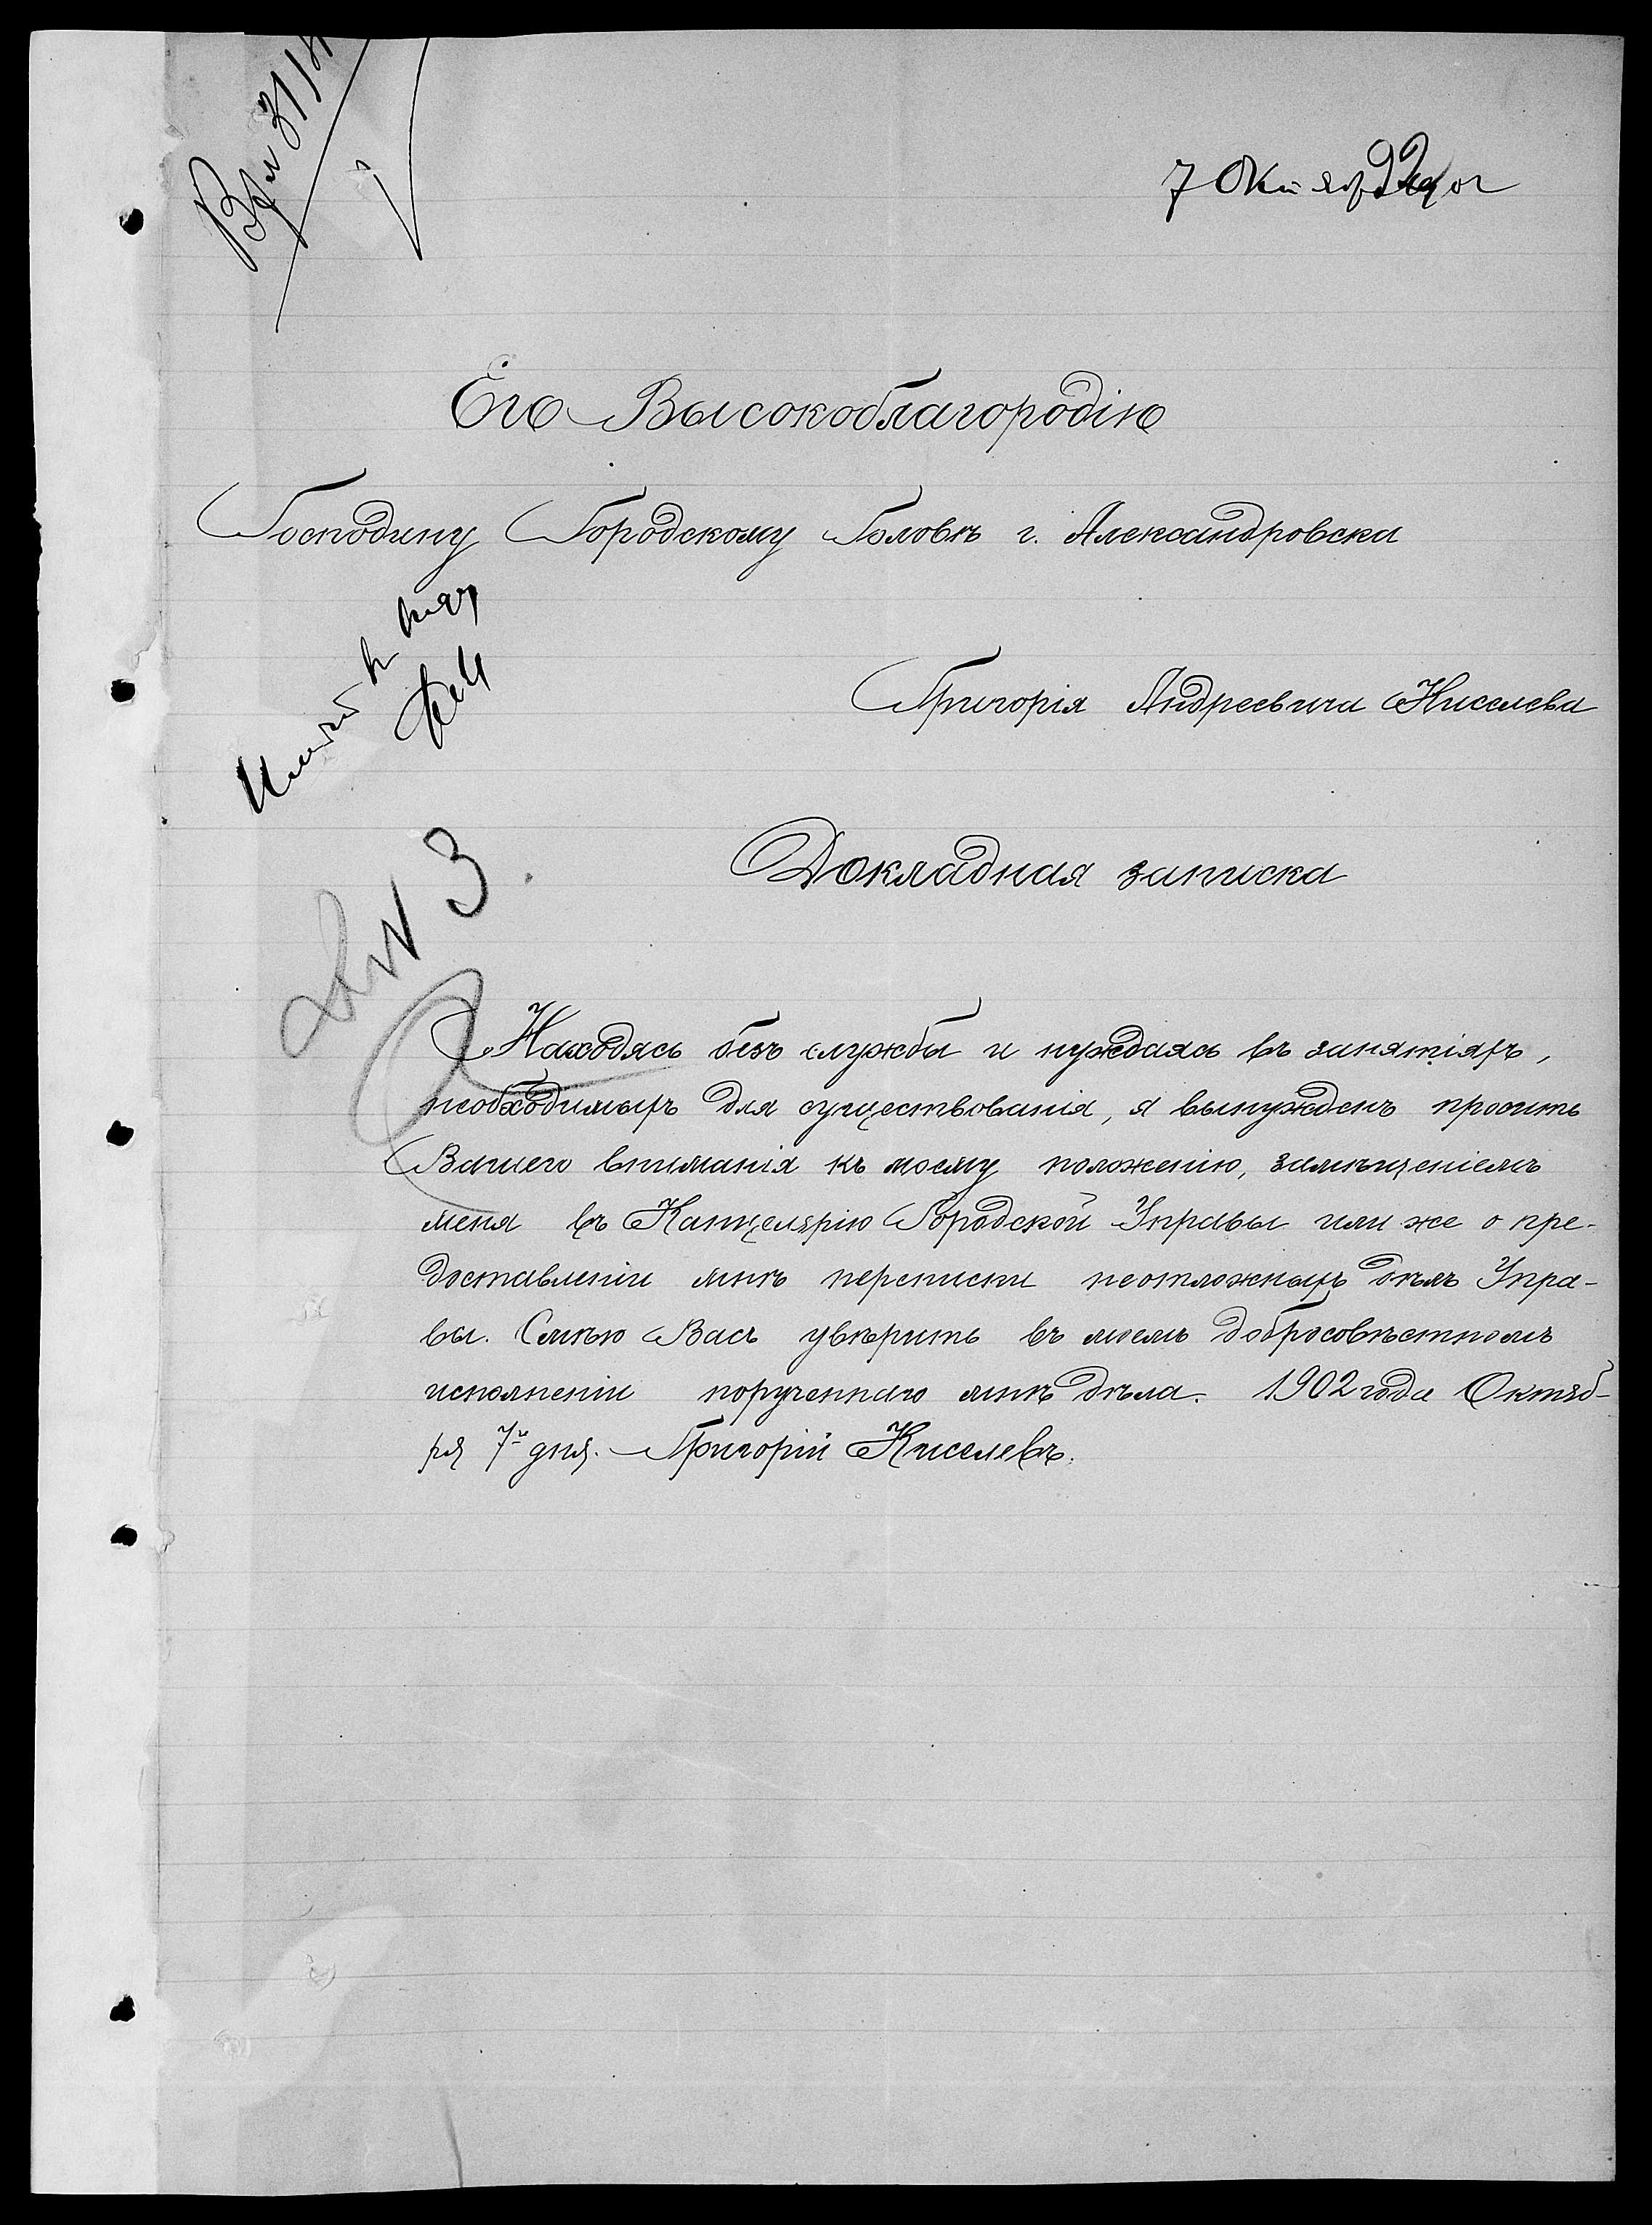 7 Октября 902
Его Высокоблагородію
Господину Городскому Головѣ г. Александровска
Григорія Андреевича Киселева
Докладная записка
Находясь безъ службы и нуждаясь въ занятіяхъ,
необходимыхъ для существованія, я вынужденъ просить
Вашего вниманія къ моему положенію, замѣщеніемъ
меня въ Канцелярію Городской Управы или же о пре-
доставленіи мнѣ переписки неотложныхъ дѣлъ Упра-
вы. Смѣю Васъ увѣрить въ моемъ добросовѣстномъ
исполненіи порученнаго мнѣ дѣла. 1902 года Октяб-
ря 7го дня. Григорій Киселевъ.
3